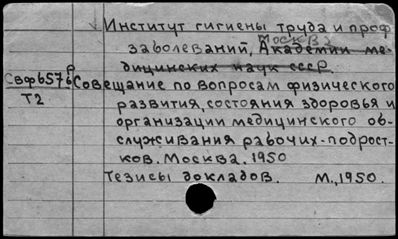 Институт гигиены труда и проф
Москва
заболеваний, Академии ме-
дицинских наук СССР.
Свф6576р Совещание по вопросам физического
Т2 развития, состояния здоровья и
организации медицинского об-
служивания рабочих-подрост-
ков. Москва. 1950
Тезисы докладов. М., 1950.